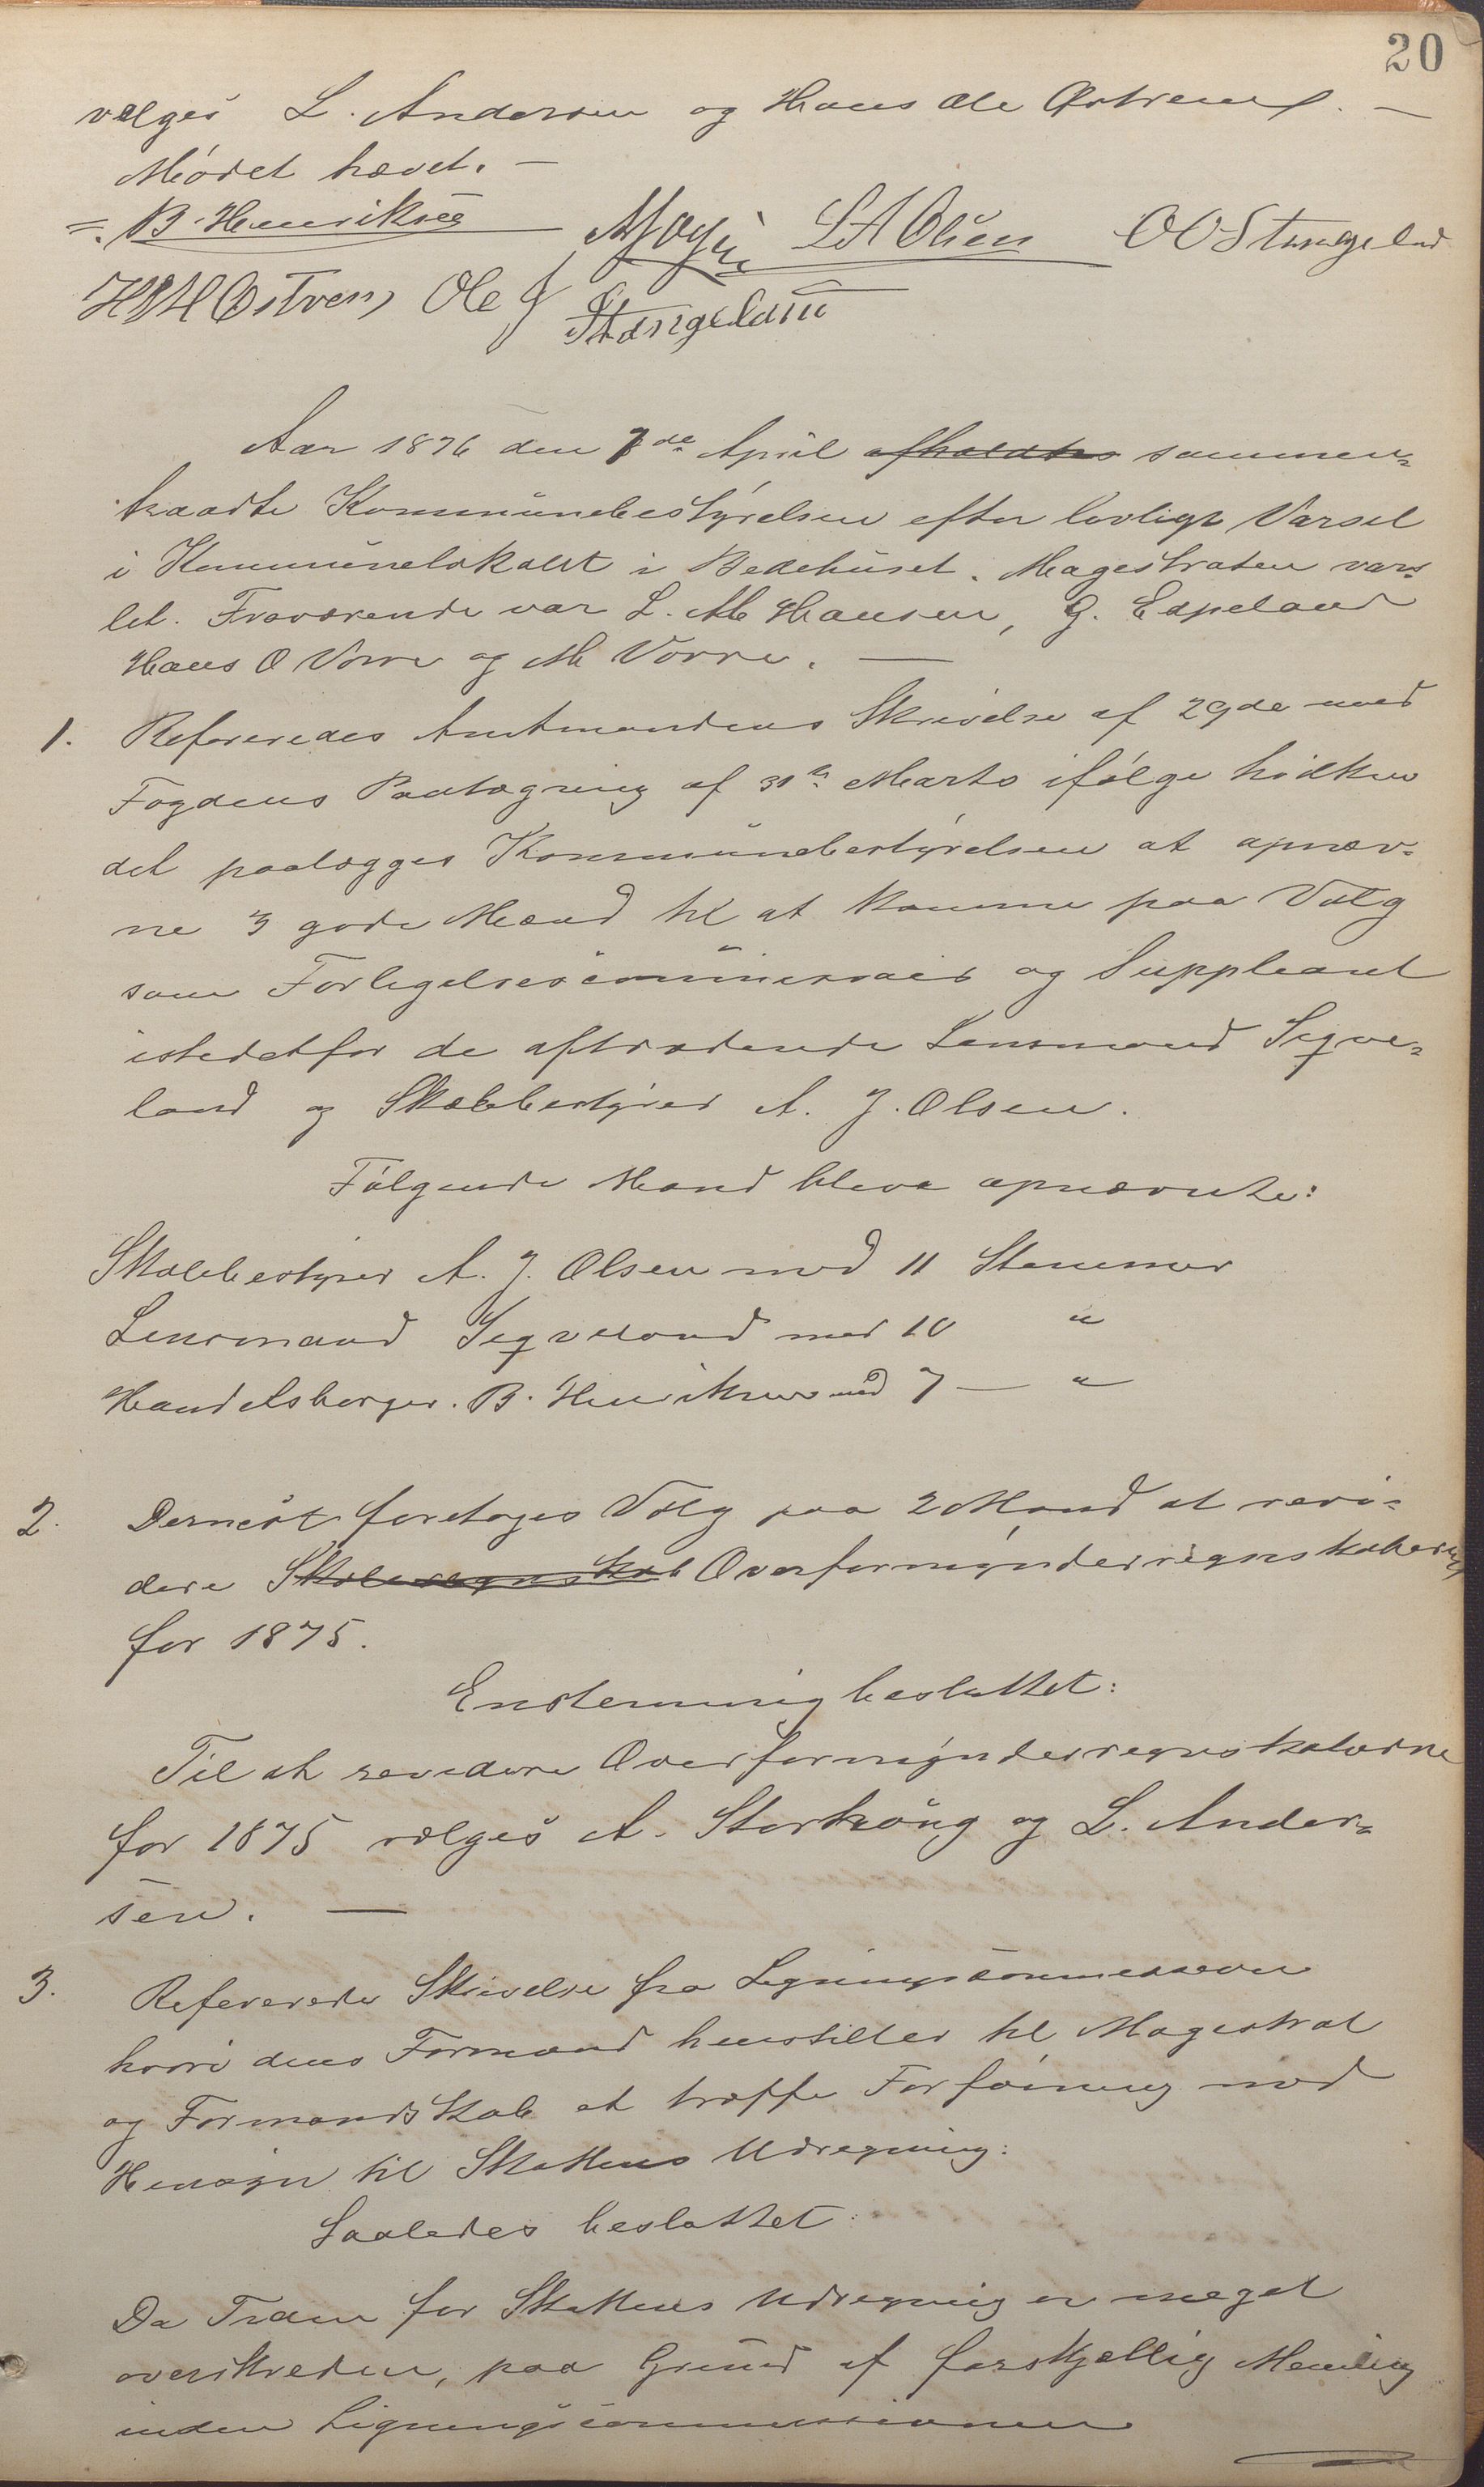 20
vælges L. Andersen og Hans Ole Østrem. —
Mödet hævet. —
B. Henriksen L A Olsen O O Stangeland
H H Østrem Ole J Stangeland
Aar 1876 den 7de April afholdtes sammen-
traadte Kommünebestÿrelsen efter lovligt Varsel
i Kommünelokalet i Bedehüset. Magestraten vars-
let. Fraværende var L. M Hansen, G. Espeland
Hans O Vorre og M Vorre. —
1. Refereredes Amtmandens Skrivelse af 29de med
Fogdens Paategning af 31te Marts ifølge hvilken
det paalægges Kommünebestÿrelsen at opnæv-
ne 3 gode Mænd til at komme paa Valg
som Forligelsescommissair og Suppleant
istedetfor de aftrædende Lensmand Seqve-
land og Skolebestÿrer A. J. Olsen.
Følgende Mænd bleve opnævnte:
Skolebestÿrer A. J. Olsen med 11 Stemmer
Lensmand Seqveland med 10 "
Handelsborger. B. Henriksen med 7 — "
2. Dernæst foretoges Valg paa 2 Mænd at revi-
dere Skoleregnskab Overformÿnderregnskaberne
for 1875.
Enstemmig besluttet:
Til at revedere Overformÿnderregnskaberne
for 1875 vælges A. Storhoüg og L. Ander-
sen. —
3. Refereredes Skrivelse fra Ligningscommissionen
hvori dens Formand henstiller til Magestrat
og Formandskab at træffe Forføining med
Hensÿn til Skattens Udregning:
Saaledes besluttet:
Da Tiden for Skattens Udregning er meget
overskreden, paa Gründ af forskjellig Mening
inden Ligningscommissionen